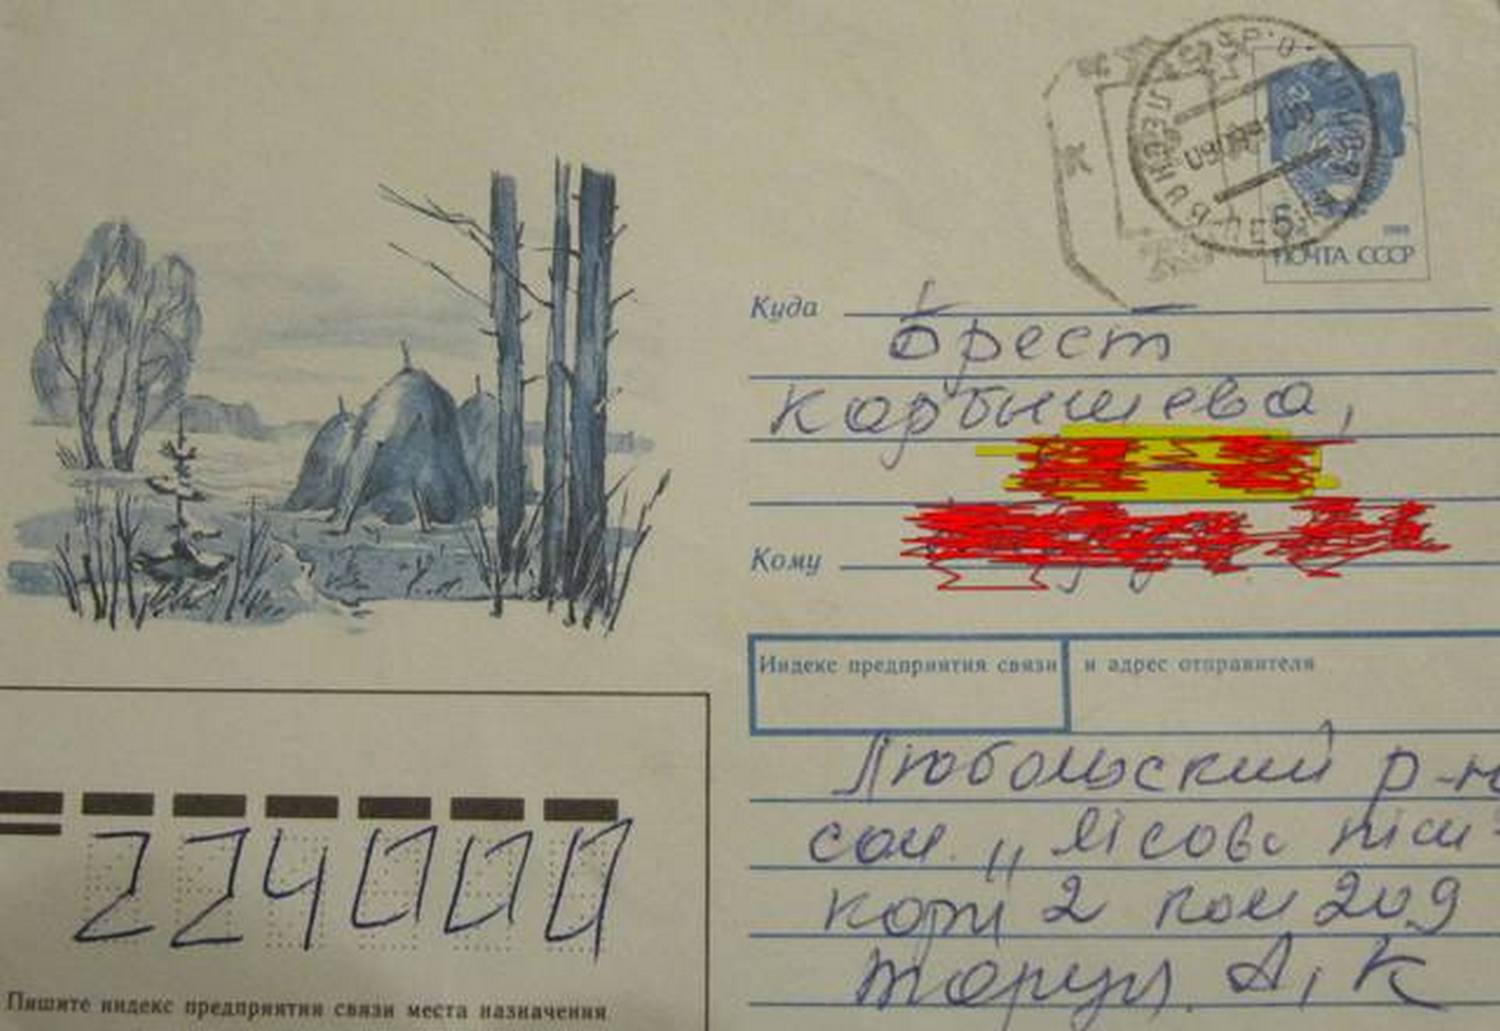 5
1988
ПОЧТА СССР
Куда
Брест
Карбышева,
Кому
Индекс предприятия связи и адрес отправителя
Любомльский р-н
сан. „ Лісова
корп 2 ком 209
А, К
224000
Пишите индекс предприятия связи места назначения